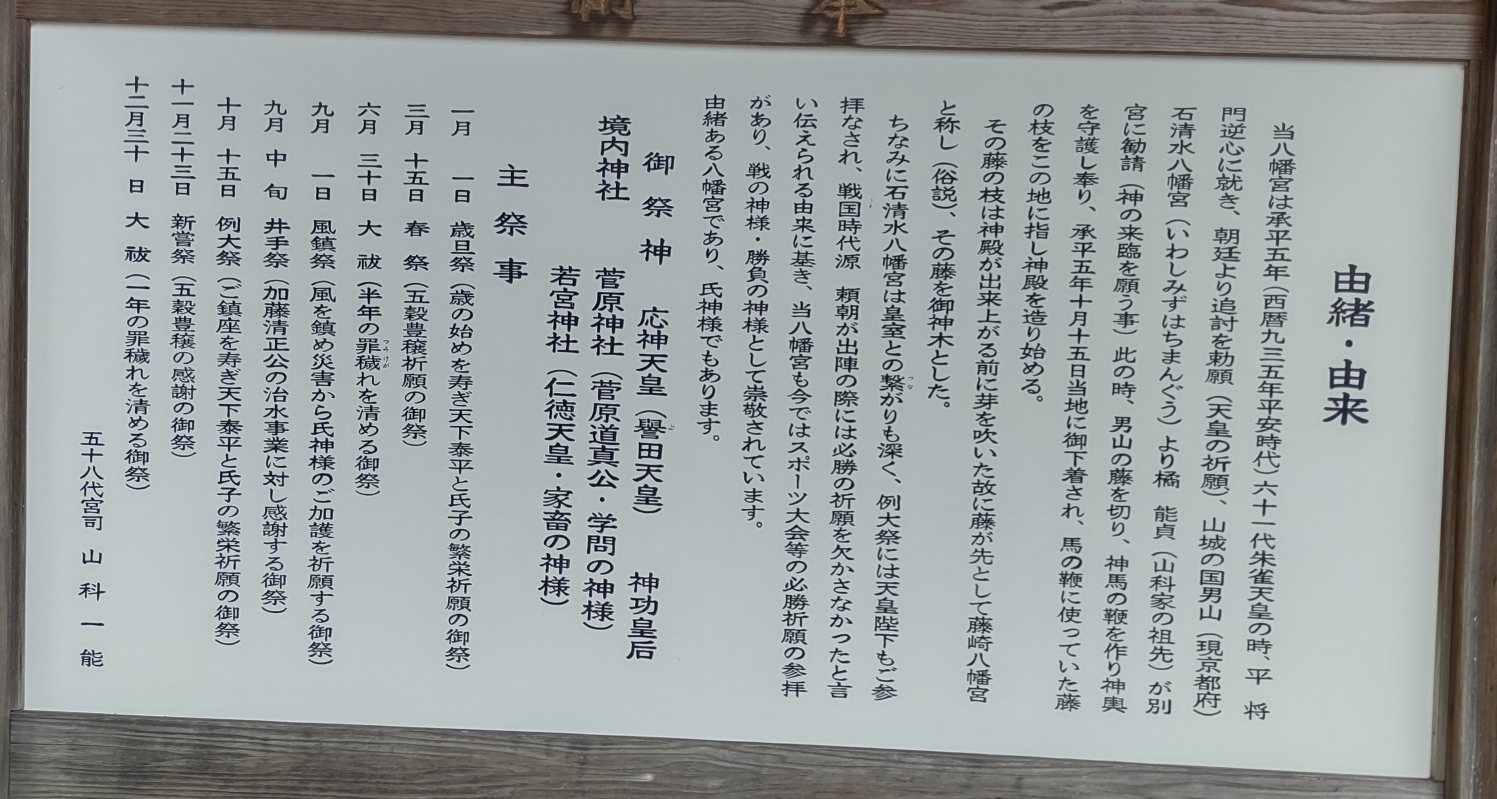 奉納
由緒・由来
当八幡宮は承平五年(西暦九三五年平安時代)六十一代朱雀天皇の時、平 将
門逆心に就き、朝廷より追討を勅願(天皇の祈願)、山城の国男山(現京都府)
石清水八幡宮(いわしみずはちまんぐう)より橘 能貞(山科家の祖先)が別
宮に勧請(神の来臨を願う事)此の時、男山の藤を切り、神馬の鞭を作り神輿
を守護し奉り、承平五年十月十五日当地に御下着され、馬の鞭に使っていた藤
の枝をこの地に指し神殿を造り始める。
その藤の枝は神殿が出来上がる前に芽を吹いた故に藤が先として藤崎八幡宮
と称し(俗説)、その藤を御神木とした。
ちなみに石清水八幡宮は皇室との繋がりも深く、例大祭には天皇陛下もご参
拝なされ、戦国時代源 頼朝が出陣の際には必勝の祈願を欠かさなかったと言
い伝えられる由来に基き、当八幡宮も今ではスポーツ大会等の必勝祈願の参拝
があり、戦の神様・勝負の神様として崇敬されています。
由緒ある八幡宮であり、氏神様でもあります。
御祭神 応神天皇(譽田天皇) 神功皇后
境内神社 菅原神社(菅原道真公・学問の神様)
若宮神社(仁徳天皇・家畜の神様)
主祭事
一月 一日 歳旦祭(歳の始めを寿ぎ天下泰平と氏子の繁栄祈願の御祭)
三月 十五日 春 祭(五穀豊穣祈願の御祭)
六月 三十日 大 祓(半年の罪穢れを清める御祭)
九月 一日 風鎮祭(風を鎮め災害から氏神様のご加護を祈願する御祭)
九月 中 旬 井手祭(加藤清正公の治水事業に対し感謝する御祭)
十月 十五日 例大祭(ご鎮座を寿ぎ天下泰平と氏子の繁栄祈願の御祭)
十一月二十三日 新嘗祭(五穀豊穣の感謝の御祭)
十二月三十 日 大 祓(一年の罪穢れを清める御祭)
五十八代宮司 山 科 一 能